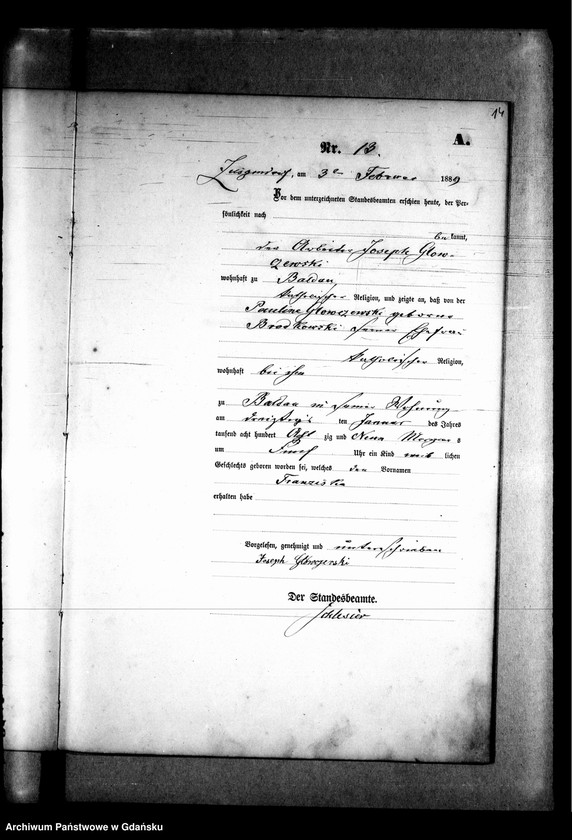 14
A.
Nr. 13.
am 3ten Februar 1889
Vor dem unterzeichneten Standesbeamten erschien heute, der Per-
sönlichkeit nach
be kannt,
der Arbeiter Joseph Glow-
czewski
wohnhaft zu Baldau
katholischer Religion, und zeigte an, daß von der
Pauline Glowczewski geborene
Brodkowski seiner Ehefrau
katholischer Religion,
wohnhaft bei ihm
zu Baldau in seiner Wohnung
am dreißigst ten Januar des Jahres
tausend acht hundert Acht zig und Neun Morgens
um Fünf Uhr ein Kind weib lichen
Geschlechts geboren worden sei, welches den Vornamen
Franziska
erhalten habe
Vorgelesen, genehmigt und unterschrieben
Joseph
Der Standesbeamte.
Schlesier
Archiwum Państwowe w Gdańsku